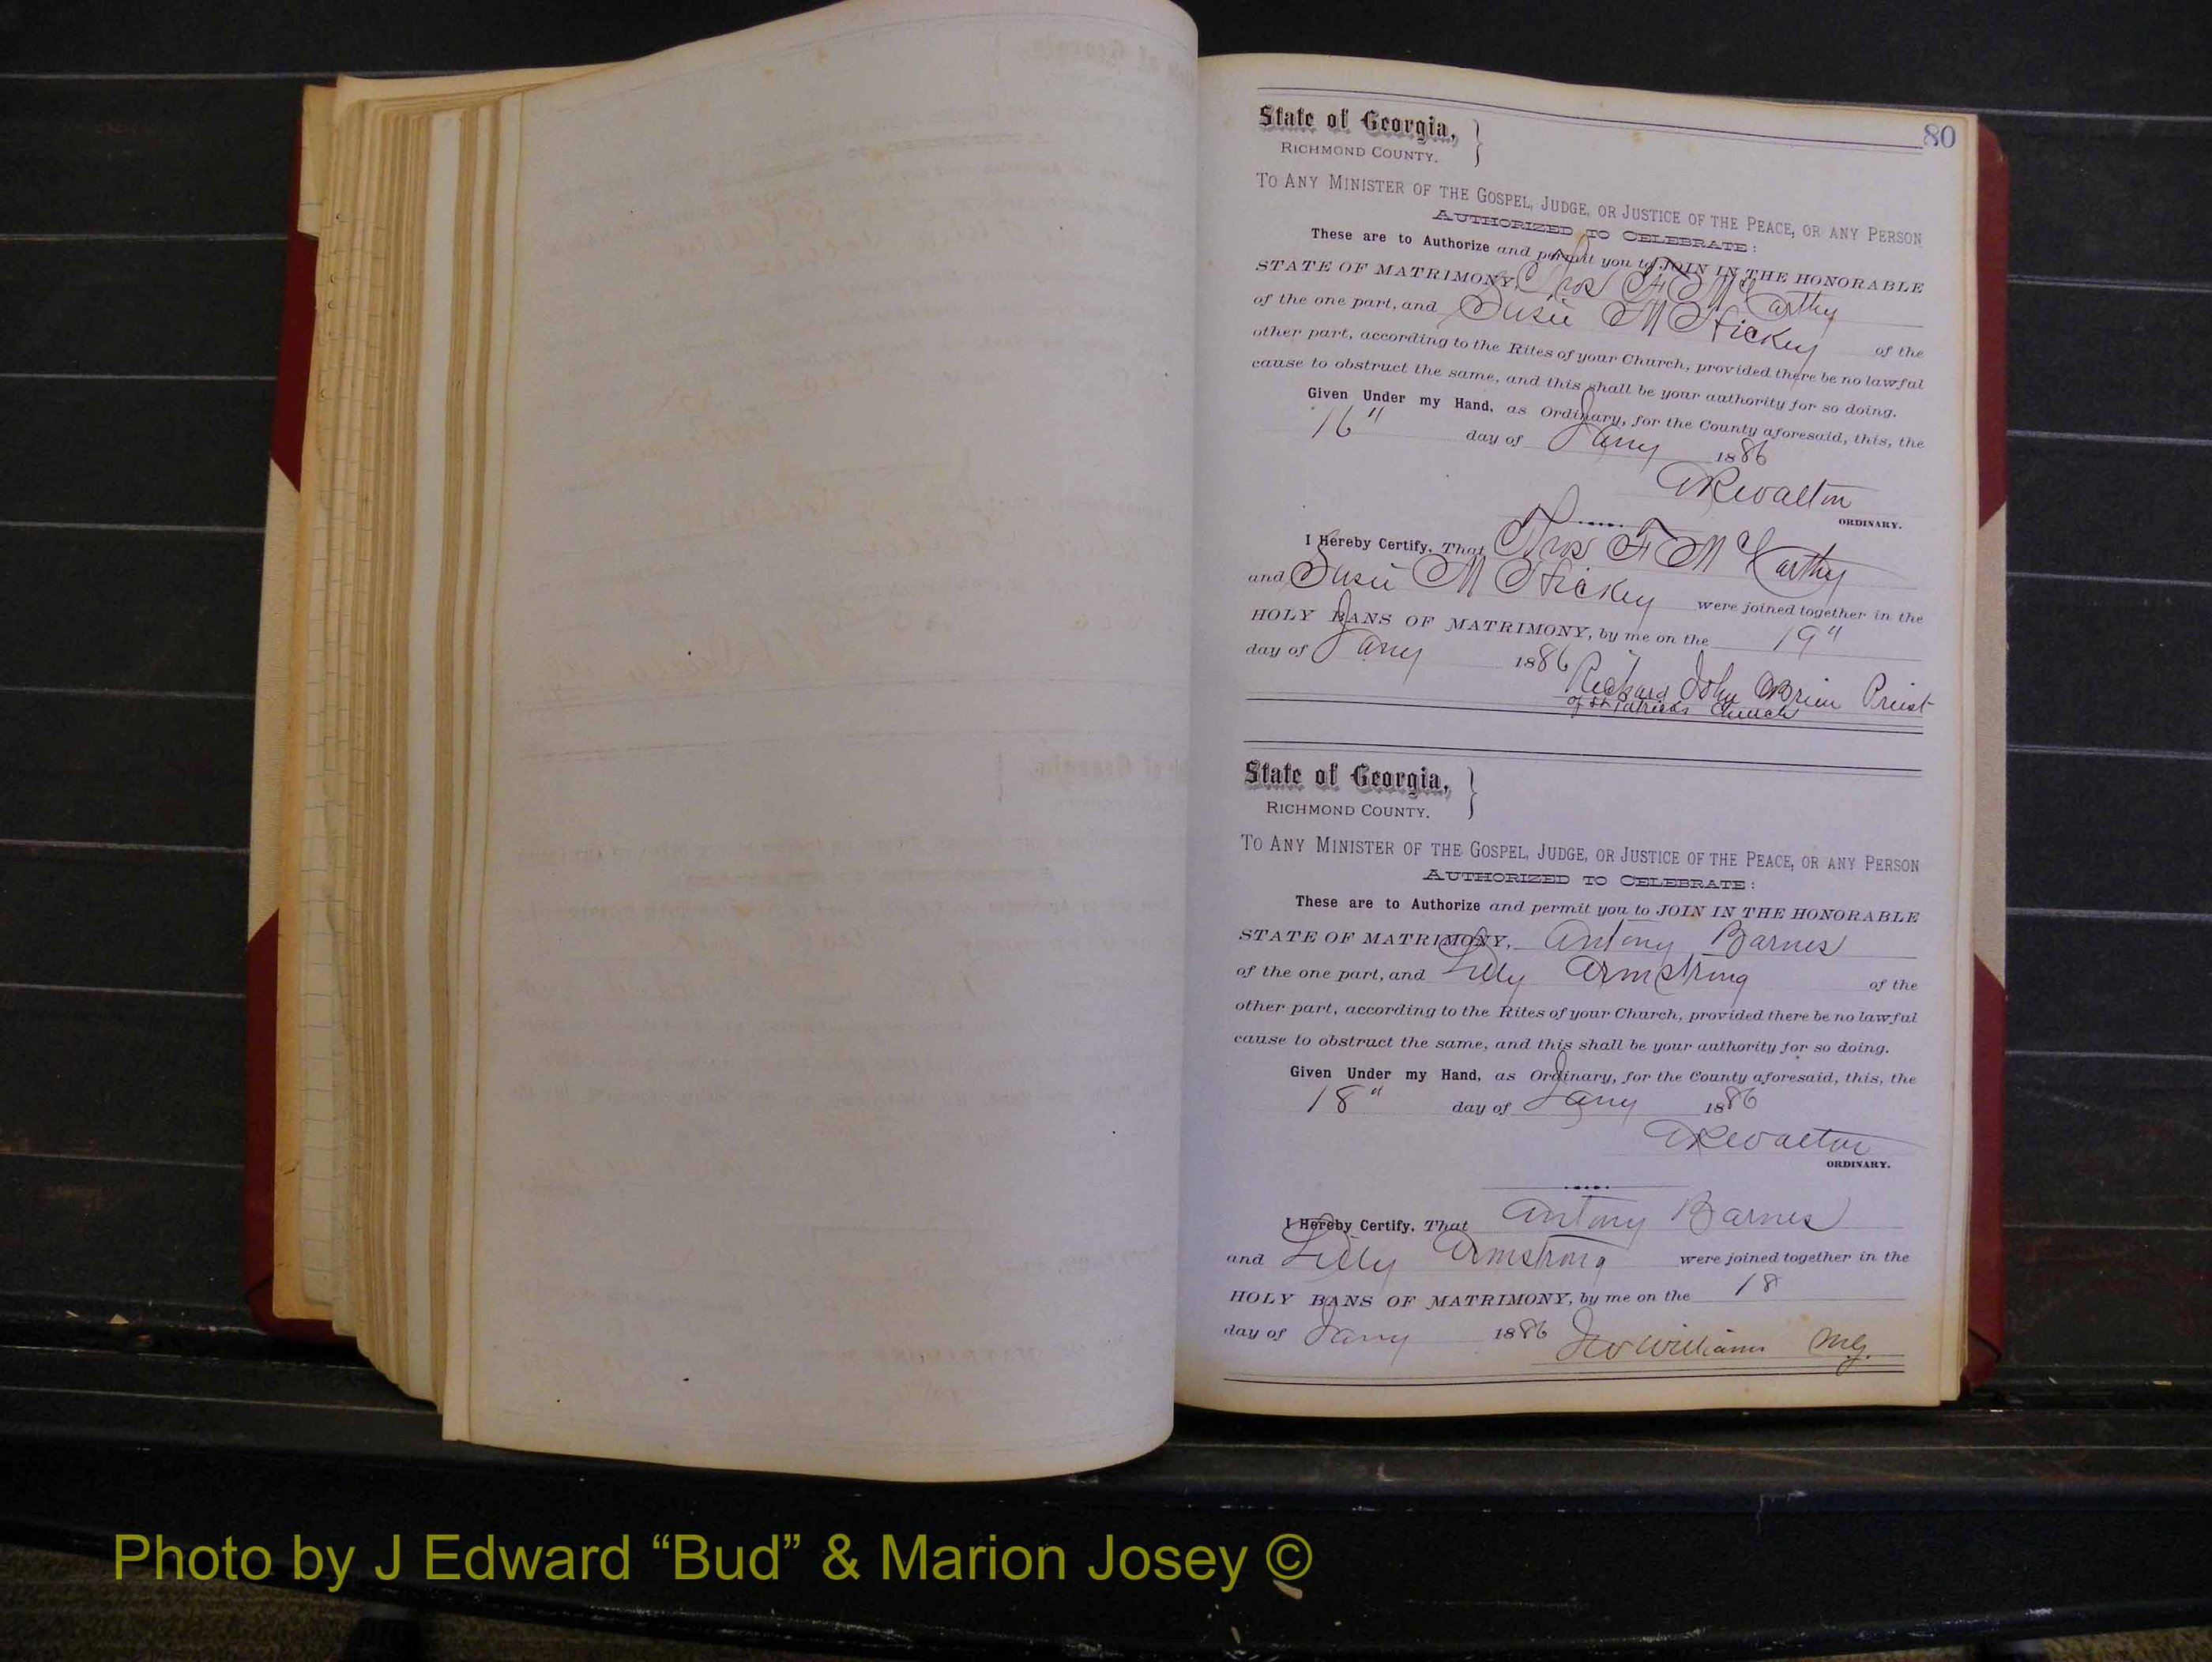 80
State of Georgia,
RICHMOND COUNTY.
TO ANY MINISTER OF THE GOSPEL, JUDGE, OR JUSTICE OF THE PEACE, OR ANY PERSON
AUTHORIZED TO CELEBRATE:
These are to Authorize and permit you to JOIN IN THE HONORABLE
STATE OF MATRIMONY, Thos F McCarthy
of the one part, and Susie M Hickey of the
other part, according to the Rites of your Church, provided there be no lawful
cause to obstruct the same, and this shall be your authority for so doing.
Given Under my Hand, as Ordinary, for the County aforesaid, this, the
16" day of Jany 1886
Walton
ORDINARY.
I Hereby Certify, That Thos F McCarthy
and Susie M Hickey were joined together in the
HOLY BANS OF MATRIMONY, by me on the 19"
day of Jany 1886 Richard John OBrien Priest
of St Patricks Church
State of Georgia,
RICHMOND COUNTY.
TO ANY MINISTER OF THE GOSPEL, JUDGE, OR JUSTICE OF THE PEACE, OR ANY PERSON
AUTHORIZED TO CELEBRATE:
These are to Authorize and permit you to JOIN IN THE HONORABLE
STATE OF MATRIMONY, Antony Barnes
of the one part, and Lilly Armstrong of the
other part, according to the Rites of your Church, provided there be no lawful
cause to obstruct the same, and this shall be your authority for so doing.
Given Under my Hand, as Ordinary, for the County aforesaid, this, the
18" day of Jany 1886
Walton
ORDINARY.
I Hereby Certify, That Antony Barnes
and Lilly Armstrong were joined together in the
HOLY BANS OF MATRIMONY, by me on the 18
day of Jany 1886 Williams M.G.
Photo by J Edward “Bud” & Marion Josey ©